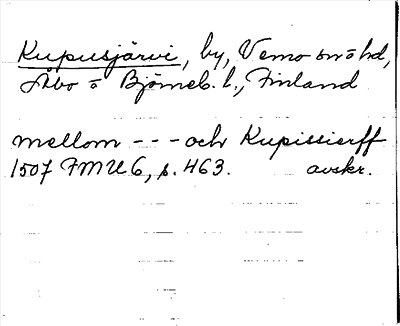 Kupusjärvi, by, Vemo snöhd,
Åbo o Björneb. l., Finland
mellom - - - och Kupissierff
1507 FMU 6, s. 463. avskr.